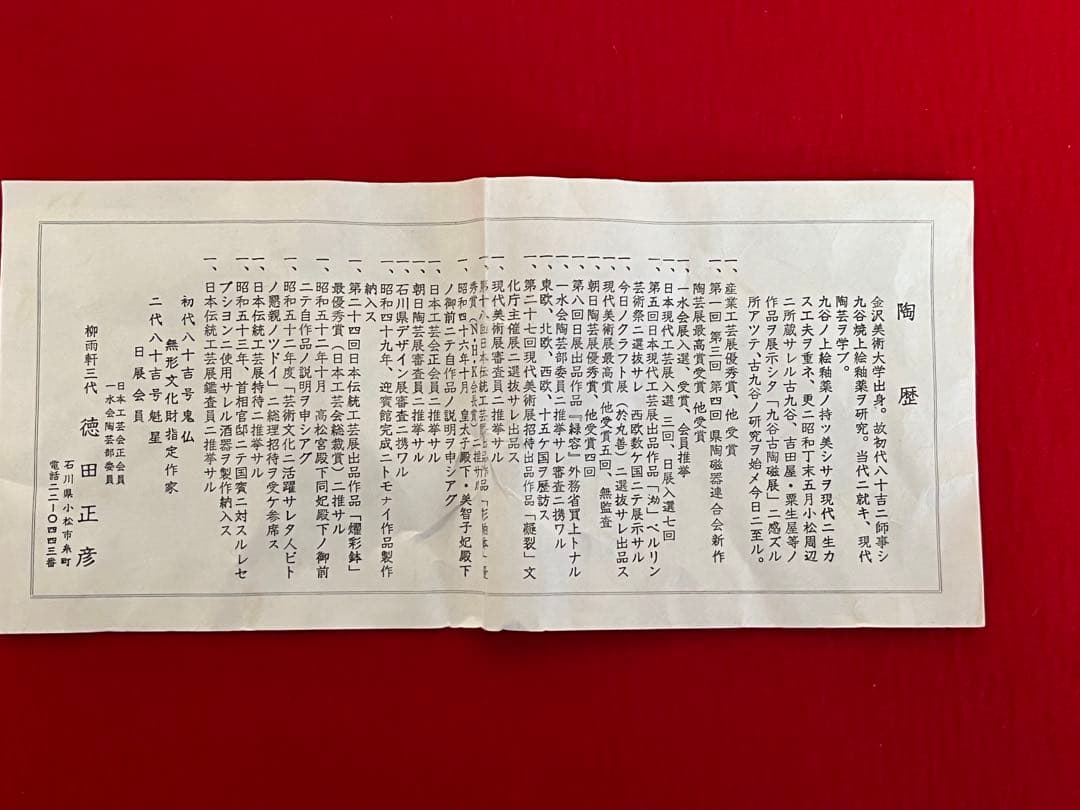 陶歴
金沢美術大学出身。故初代八十吉ニ師事シ
九谷焼上絵釉薬ヲ研究。当代ニ就キ、現代
陶芸ヲ学ブ。
九谷ノ上絵釉薬ノ持ツ美シサヲ現代ニ生カ
ス工夫ヲ重ネ、更ニ昭和丁末五月小松周辺
ニ所蔵サレル古九谷、吉田屋・粟生屋等ノ
作品ヲ展示シタ「九谷古陶磁展」ニ感ズル
所アツテ、古九谷ノ研究ヲ始メ今日ニ至ル。
一、産業工芸展優秀賞、他受賞
一、第一回 第三回 第四回 県陶磁器連合会新作
陶芸展最高賞受賞 他受賞
一、一水会展入選、受賞、会員推挙
一、日本現代工芸展入選 三回、日展入選七回
一、第五回日本現代工芸展出品作品「渤」ベルリン
芸術祭ニ選抜サレ 西欧数ケ国ニテ展示サル
一、今日ノクラフト展（於丸善）ニ選抜サレ出品ス
一、現代美術展最高賞 他受賞五回、無監査
一、朝日陶芸展優秀賞、他受賞四回
一、第八回日展出品作品『緑容』外務省買上トナル
一、一水会陶芸部委員ニ推挙サレ審査ニ携ワル
一、東欧、北欧、西欧、十五ケ国ヲ歴訪ス
一、第二十七回現代美術展招待出品作品「礙裂」文
化庁主催展ニ選抜サレ出品ス
一、現代美術展審査員ニ推挙サル
一、第十八回日本伝統工芸展出品作品「彩釉鉢」優
秀賞（N・H・K会長賞）ニ推サル
一、昭和四十六年十月、皇太子殿下・美智子妃殿下
ノ御前ニテ自作品ノ説明ヲ申シアグ
一、日本工芸会正会員ニ推挙サル
一、朝日陶芸展審査員ニ推挙サル
一、石川県デザイン展審査ニ携ワル
一、昭和四十九年、迎賓館完成ニトモナイ作品製作
納入ス
一、第二十四回日本伝統工芸展出品作品「燿彩鉢」
最優秀賞（日本工芸会総裁賞）ニ推サル
一、昭和五十二年十月、高松宮殿下同妃殿下ノ御前
ニテ自作品ノ説明ヲ申シアグ
一、昭和五十二年度「芸術文化ニ活躍サレタ人ビト
ノ懇親ノツドイ」ニ総理招待ヲ受ケ参席ス
一、日本伝統工芸展特待ニ推挙サル
一、昭和五十三年、首相官邸ニテ国賓ニ対スルレセ
プシヨンニ使用サレル酒器ヲ製作納入ス
一、日本伝統工芸展鑑査員ニ推挙サル
初代 八十吉号鬼仏
無形文化財指定作家
二代 八十吉号魁星
日展会員
日本工芸会正会員
一水会陶芸部委員
柳雨軒三代 徳田正彦
石川県小松市糸町
電話二二-〇四四三番